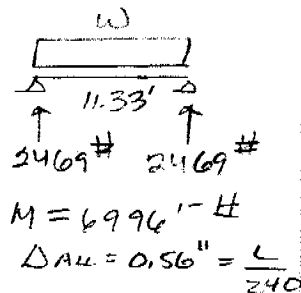 W
11.33'
2469# 2469#
M = 6996'-#
ΔALL = 0.56" = L/240